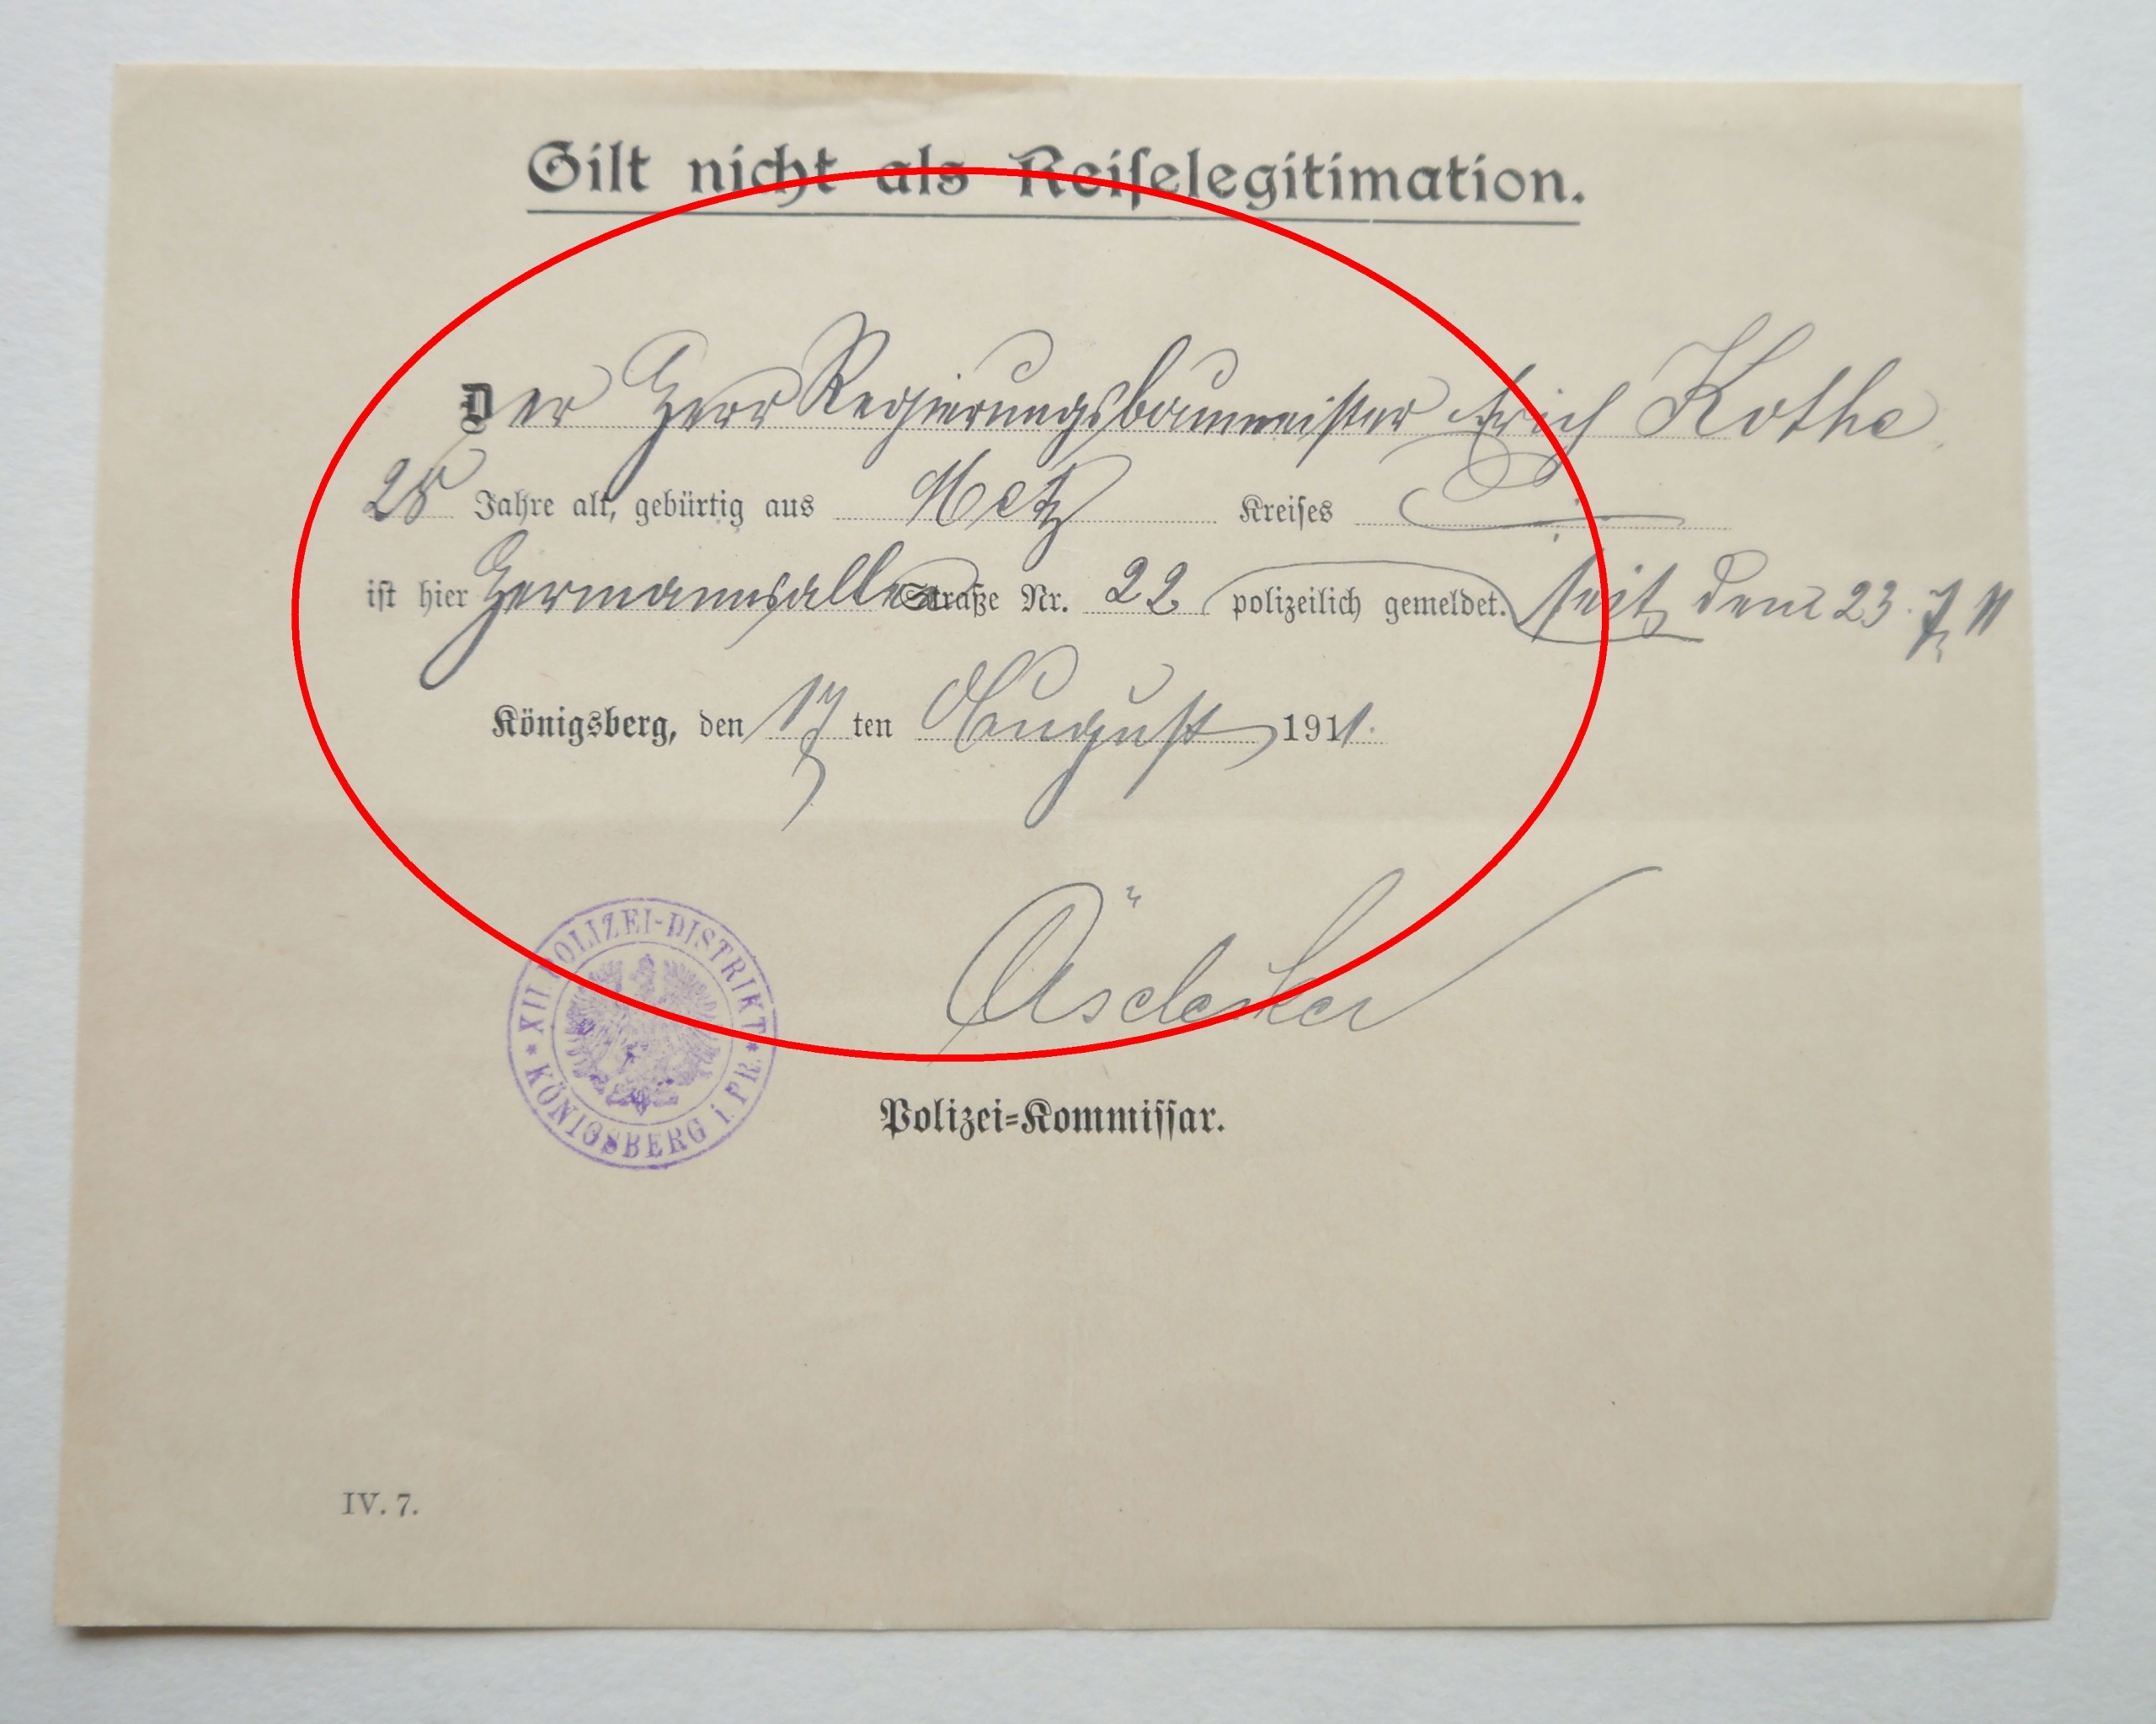 Gilt nicht als Reiselegitimation.
Der Herr Regierungsbaumeister Erich Kothe
28 Jahre alt, gebürtig aus Metz Kreises
ist hier Hermannsallee Straße Nr. 22 polizeilich gemeldet. seit dem 23. 7. 11
Königsberg, den 17 ten August 1911.
XII. POLIZEI-DISTRIKT
* KÖNIGSBERG i. PR. *
Polizei-Kommissar.
IV. 7.